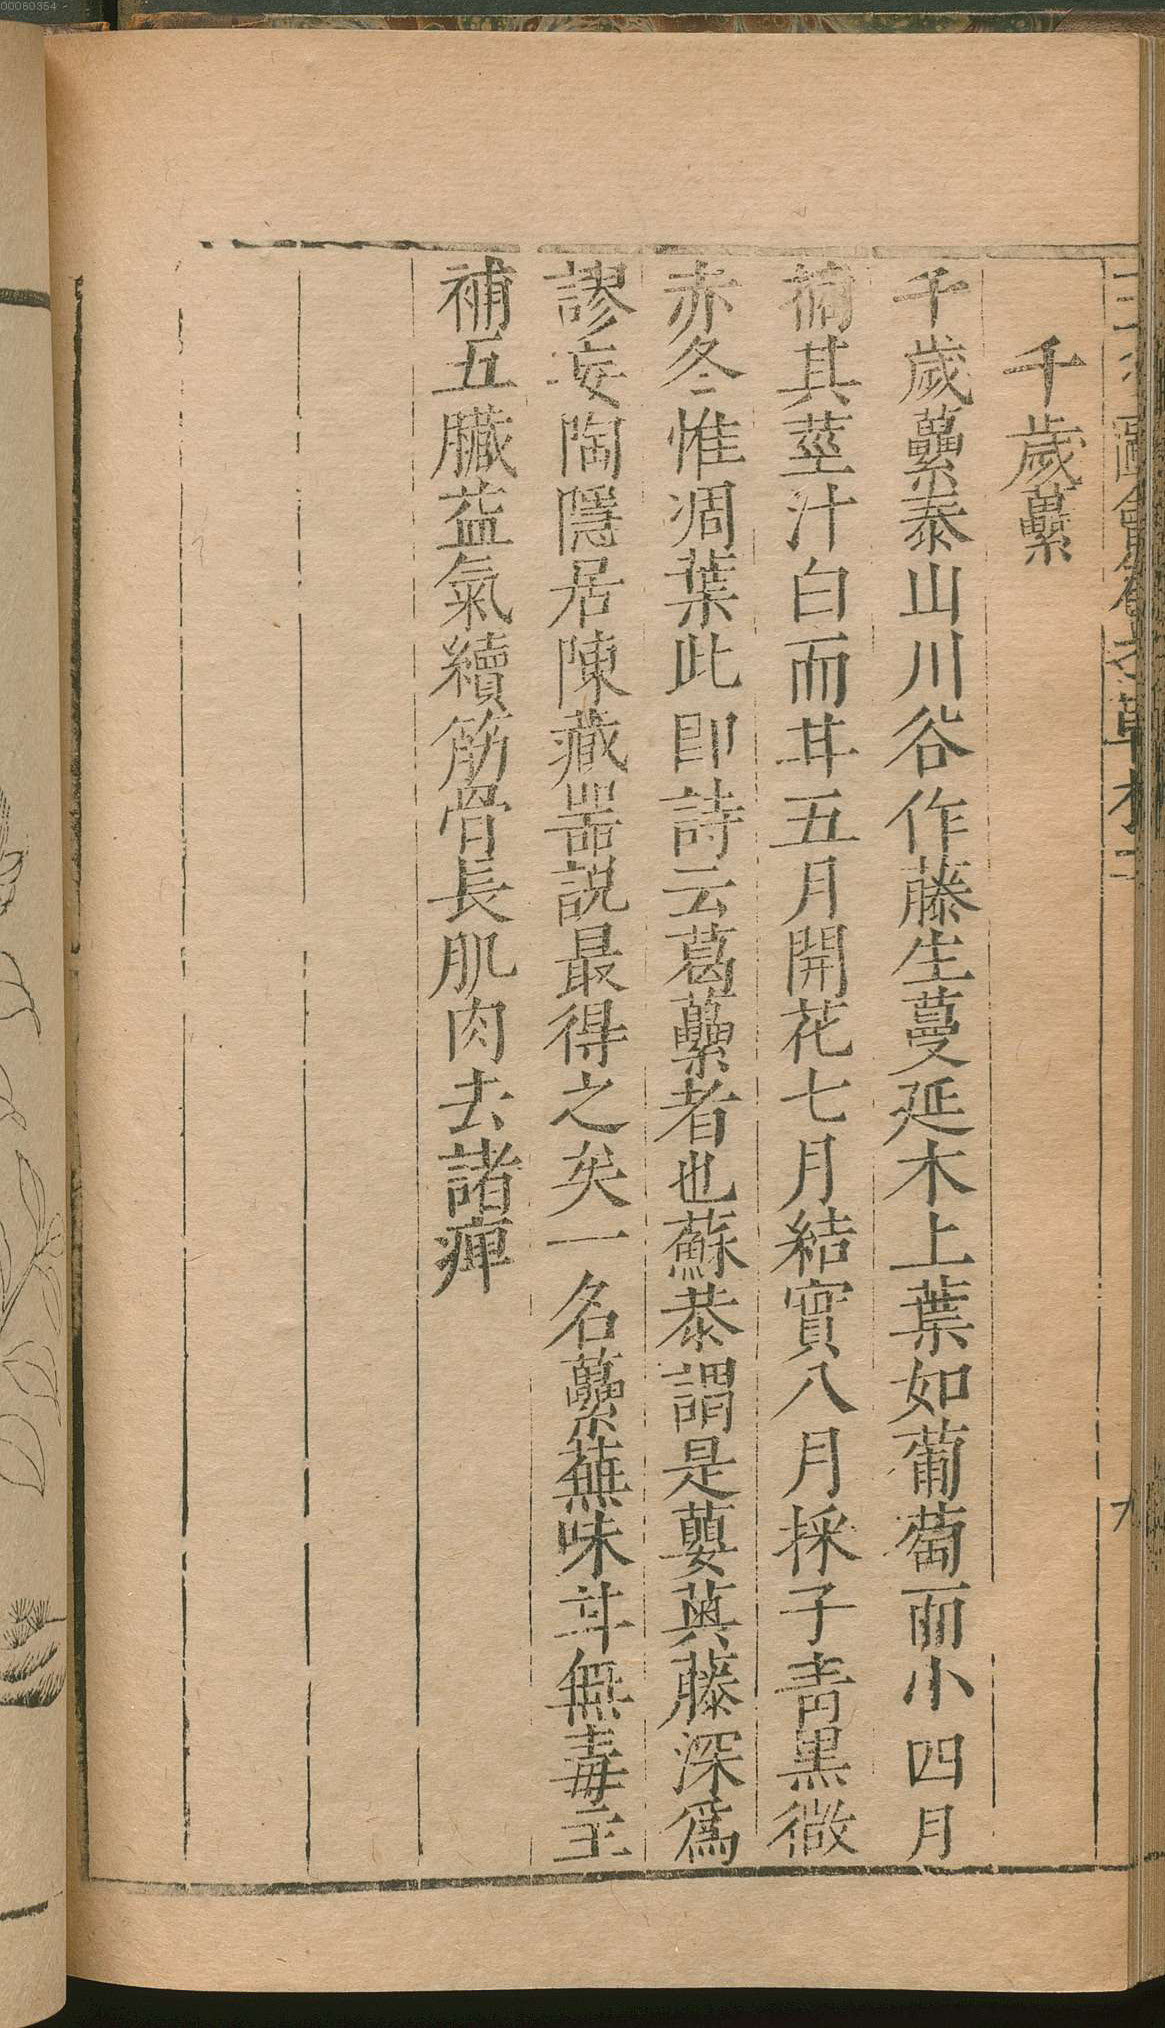 00060354
三才圖會
草木
二
九
千歲虆
千歲虆泰山川谷作藤生蔓延木上葉如葡萄而小四月
摘其莖汁白而甘五月開花七月結實八月採子青黑微
赤冬惟凋葉此即詩云葛虆者也蘇恭謂是蘡薁藤深爲
謬妄陶隱居陳藏器說最得之矣一名虆蕪味甘無毒主
補五臟益氣續筋骨長肌肉去諸痺